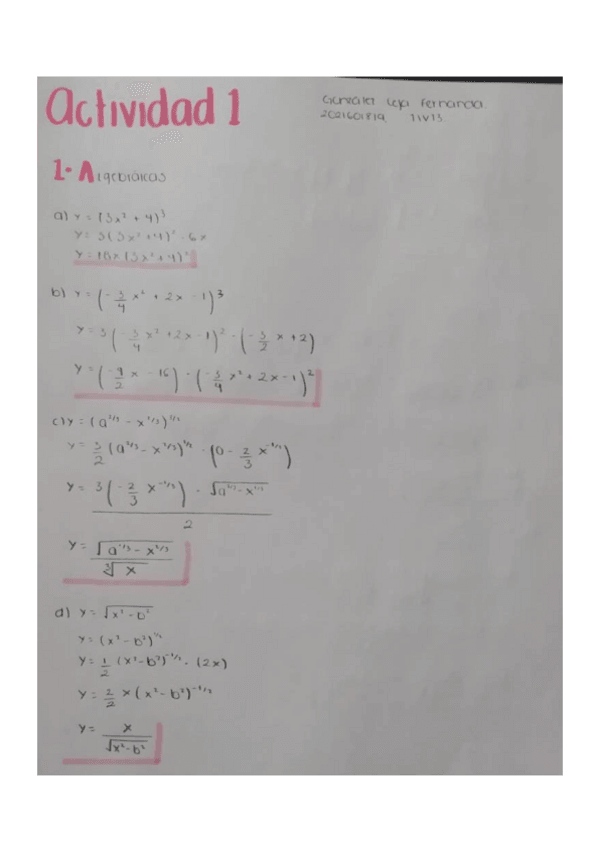 Actividad 1
González Leja Fernanda
1IV13
1. Algebráicas
a) y = (3x² + 4)³
y = 3(3x² + 4)² · 6x
y = 18x (3x² + 4)²
b) y = (-3/4 x² + 2x - 1)³
y = 3(-3/4 x² + 2x - 1)² · (-3/2 x + 2)
y = (-9/2 x - 16) · (-3/4 x² + 2x - 1)²
c) y = (a²/³ - x²/³)³/²
y = 3/2 (a²/³ - x²/³)¹/² · (0 - 2/3 x⁻¹/³)
y = 3(-2/3 x⁻¹/³) · √a²/³ - x²/³ / 2
y = √a²/³ - x²/³ / ∛x
d) y = √x² - b²
y = (x² - b²)¹/²
y = 1/2 (x² - b²)⁻¹/² · (2x)
y = 2/2 x (x² - b²)⁻¹/²
y = x / √x² - b²